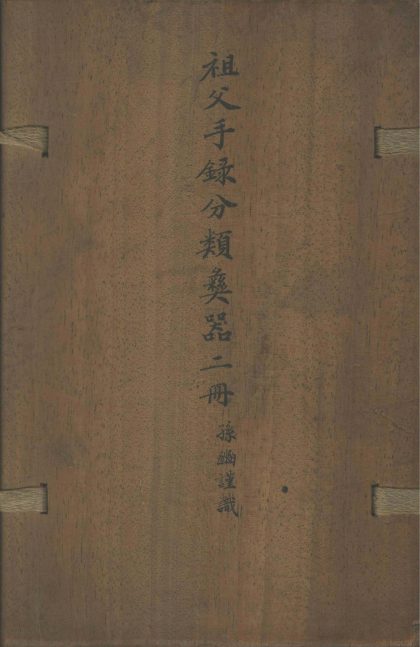 祖父手録分類彝器二冊
孫幽謹識